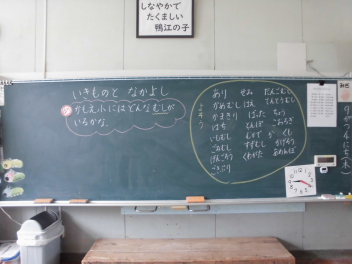 しなやかで
たくましい
鴨江の子
いきものと なかよし
かもえ小にはどんなむしが
いるかな。
よそう
あり せみ だんごむし
かめむし はえ てんとうむし
かまきり ばった ちょう
はち とんぼ こおろぎ
いもむし むかで が くも
こめむし すずむし かげろう
げんごろう くわがた あめんぼ
ごきぶり
9がつ
にち(木)